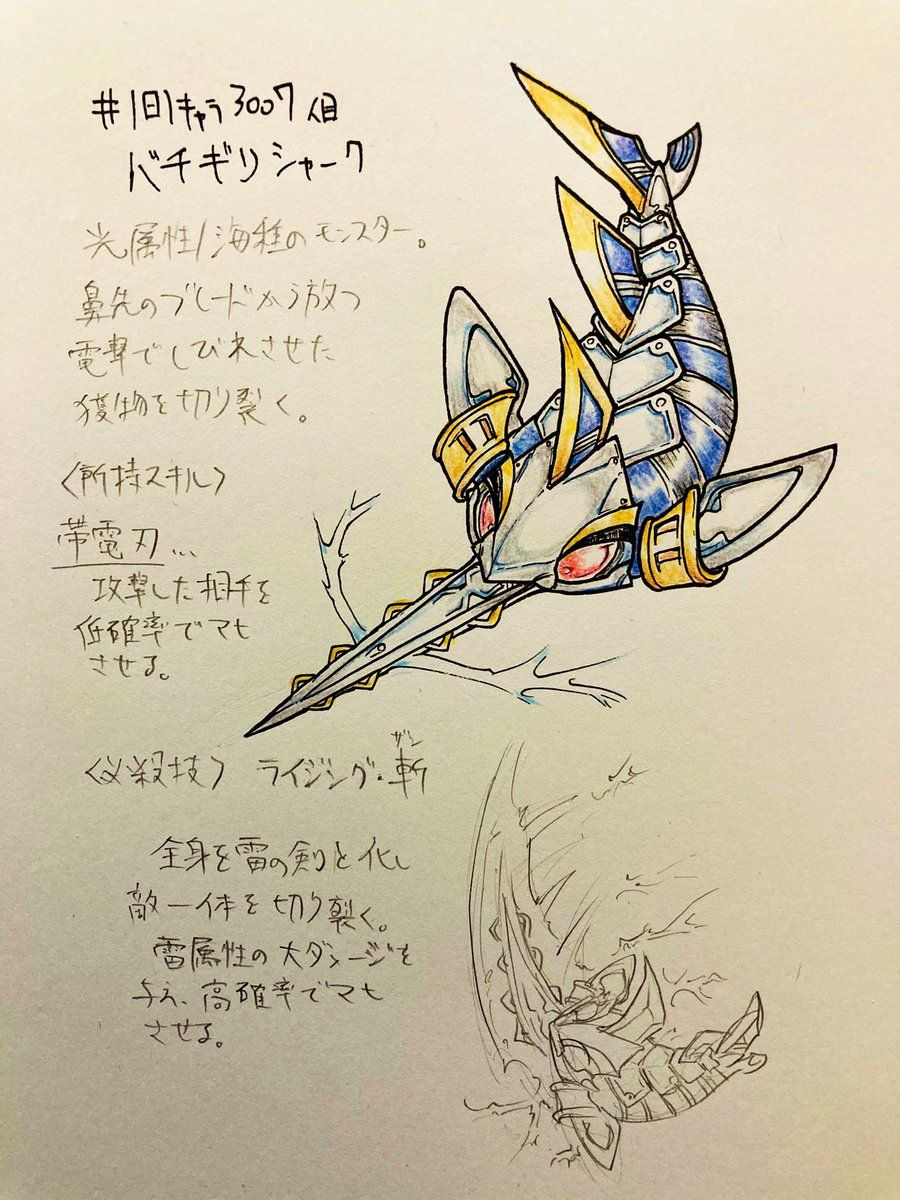 #1日1キャラ3007人目
バチギリシャーク
光属性/海種のモンスター。
鼻先のブレードから放つ
電撃でしびれさせた
獲物を切り裂く。
〈所持スキル〉
帯電刃…
攻撃した相手を
低確率でマヒ
させる。
〈必殺技〉 ライジング・斬
ザン
全身を雷の剣と化し
敵一体を切り裂く。
雷属性の大ダメージを
与え、高確率でマヒ
させる。